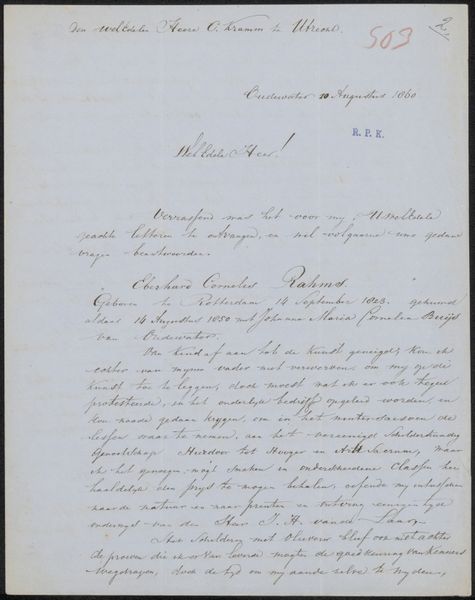 Den WelEdelen Heere C. Kramm te Utrecht.
503
2
Oudewater 10 Augustus 1860
R. P. K.
WelEdele Heer!
Verrassend was het voor my, UwelEdele
geachte letteren te ontvangen, en wil volgaarne uwe gedane
vragen beantwoorden.
Eberhard Cornelis Rahms.
Geboren te Rotterdam 14 September 1823. gehuwd
aldaar 14 Augustus 1850 met Johanna Maria Cornelia Buijs
van Oudewater.
Van kind af aan tot de kunst geneigd, kon ik
echter van mynen vader niet verwerven, om my op de
kunst toe te leggen, doch moest wat ik er ook tegen
protesteerde, in het ouderlyk bedryf opgeleid worden, en
kon noode gedaan krygen, om in het winter saisoen de
lessen waar te nemen, aan het
Genootschap Hierdoor tot Hooger en Arti Sacrum, waar
ik het genoegen mogt smaken in onderscheidene Classen her-
haaldelyk den prys te mogen behalen, oefende my intusschen
naar de natuur en naar prenten en ontving eenigen tyd
onderwys van den Heer J. H. van de Laar.
Het Schilderen met Olieverw bleef ook niet achter
de proeven die ik er van leverde mogten de goedkeuring van kenners
wegdragen, doch de tyd om my aan de zelve te wyden,